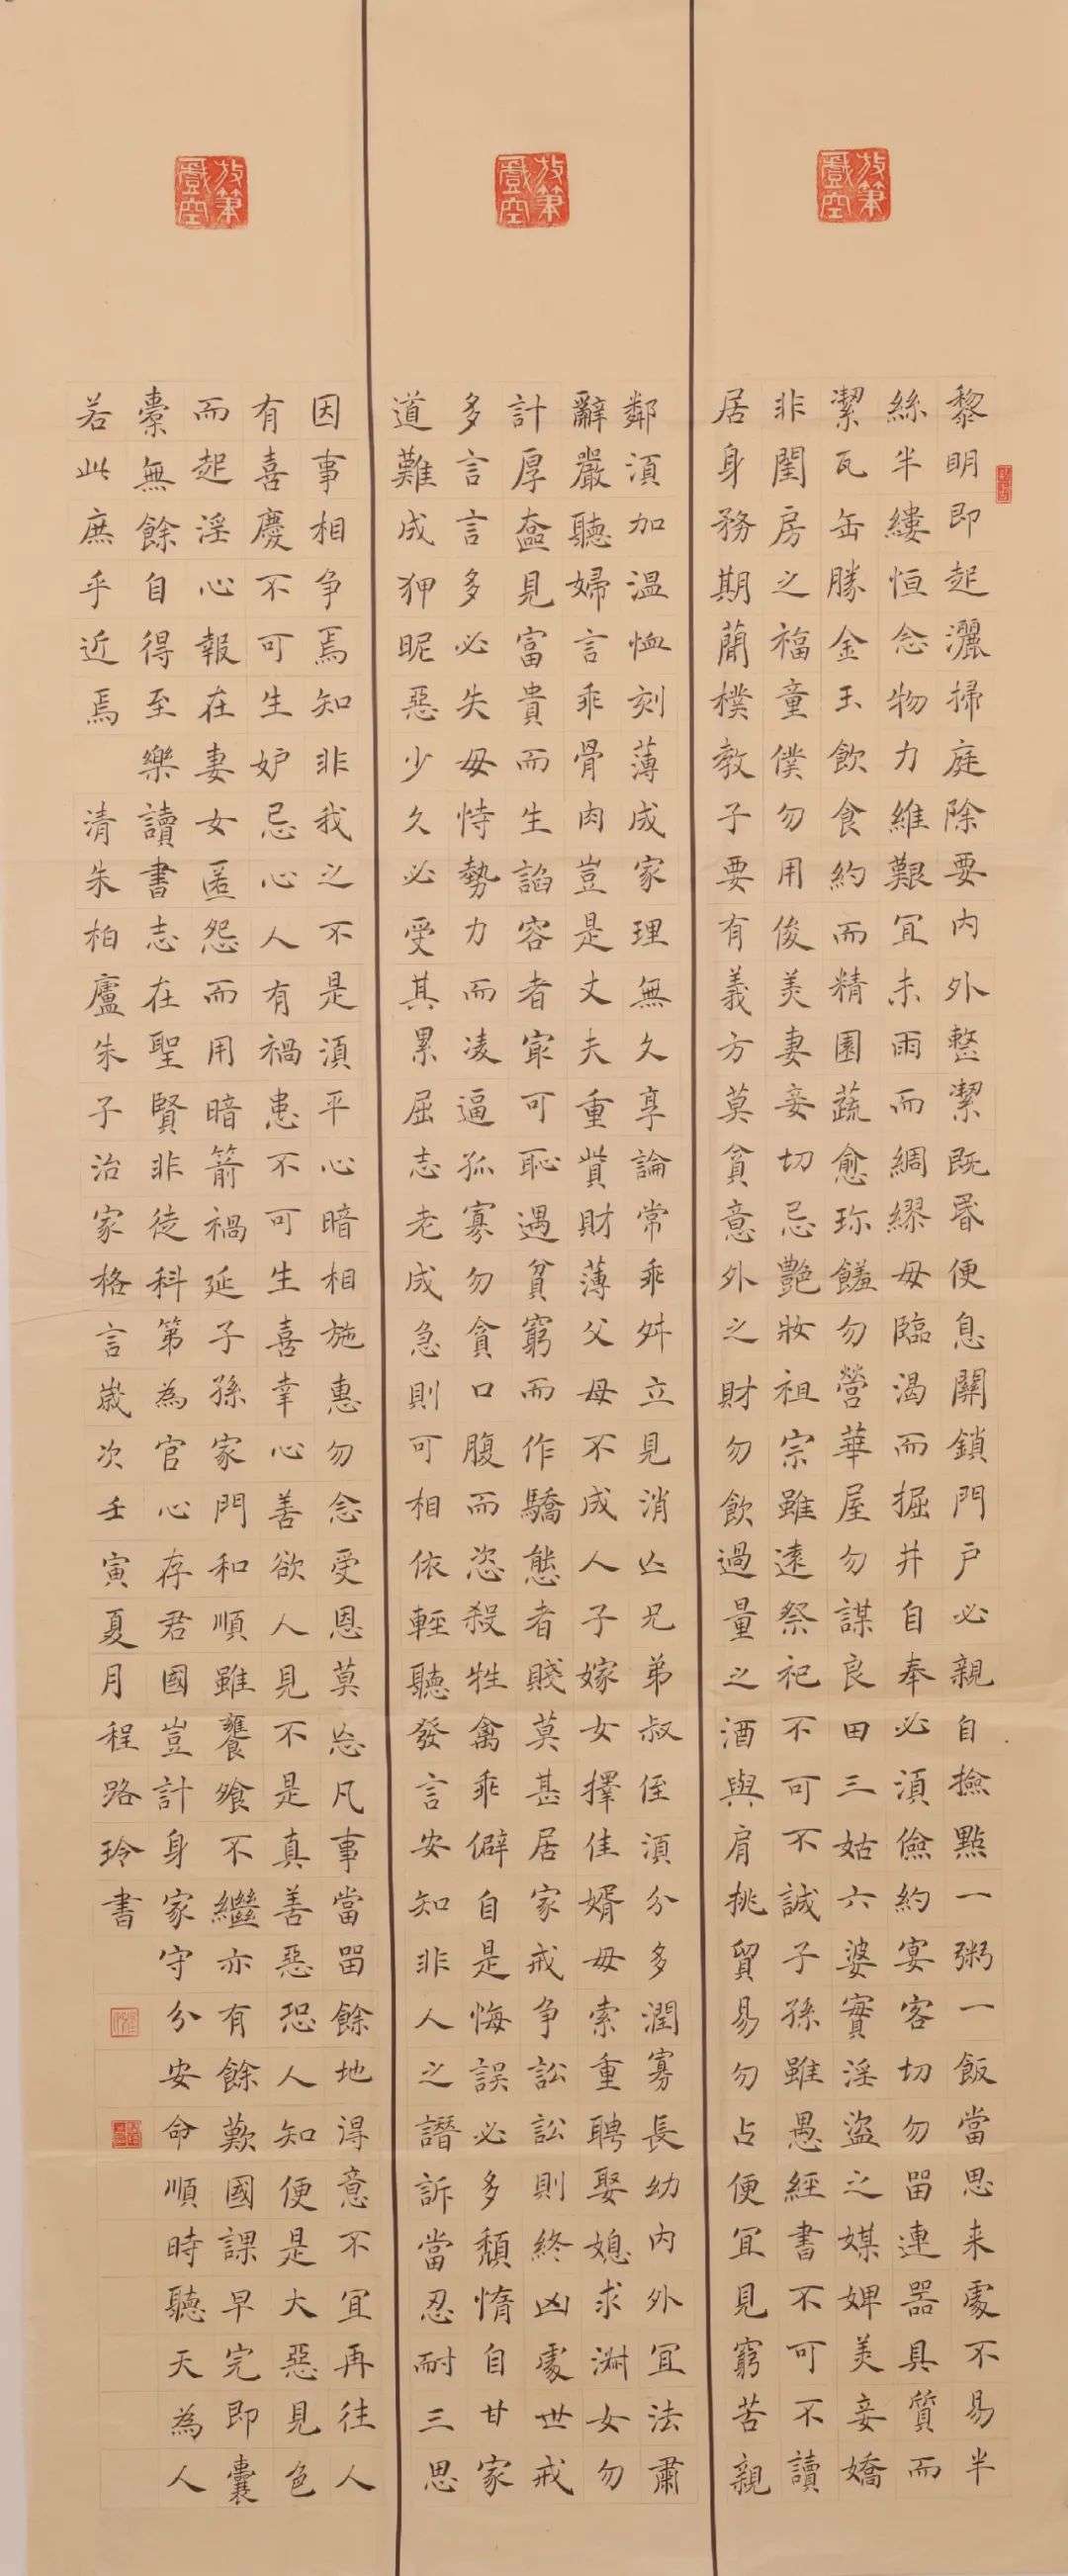 放筆戲空
黎明即起灑掃庭除要内外整潔既昬便息關鎖門戶必親自撿點一粥一飯當思来處不易半
絲半縷恒念物力維艱冝未雨而綢繆毋臨渴而掘井自奉必湏儉約宴客切勿畱連器具質而
潔瓦缶勝金玉飲食約而精園蔬愈珎饈勿營華屋勿謀良田三姑六婆實淫盜之媒婢美妾嬌
非閨房之福童僕勿用俊美妻妾切忌艷妝祖宗雖遠祭祀不可不誠子孫雖愚經書不可不讀
居身務期蕳樸教子要有義方莫貪意外之財勿飲過量之酒與肩挑貿易勿占便冝見窮苦親
放筆戲空
鄰湏加温恤刻薄成家理無久享論常乖舛立見消亾兄弟叔侄湏分多潤寡長幼内外冝法肅
辭嚴聽婦言乖骨肉豈是丈夫重貲財薄父母不成人子嫁女擇佳婿毋索重聘娶媳求淑女勿
計厚奩見富貴而生諂容者㝡可恥遇貧窮而作驕態者賤莫甚居家戒争訟訟則終凶處世戒
多言言多必失毋恃勢力而凌逼孤寡勿貪口腹而恣殺牲禽乖僻自是悔誤必多頽惰自甘家
道難成狎昵惡少久必受其累屈志老成急則可相依輕聽發言安知非人之譖訴當忍耐三思
放筆戲空
因事相争焉知非我之不是湏平心暗相施惠勿念受恩莫忘凡事當畱餘地得意不冝再往人
有喜慶不可生妒忌心人有禍患不可生喜幸心善欲人見不是真善惡恐人知便是大惡見色
而起淫心報在妻女匿怨而用暗箭禍延子孫家門和順雖饔飧不繼亦有餘歡國課早完即囊
橐無餘自得至樂讀書志在聖賢非徒科第為官心存君國豈計身家守分安命順時聽天為人
若此庶乎近焉 清朱柏廬朱子治家格言歲次壬寅夏月程路玲書